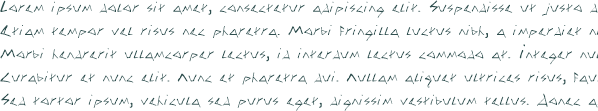 Lorem ipsum dolor sit amet, consectetur adipiscing elit. Suspendisse ut justo a
Etiam tempor vel risus nec pharetra. Morbi fringilla luctus nibh, a imperdiet n
Morbi hendrerit ullamcorper lectus, id interdum lectus commodo at. Integer nun
Curabitur et nunc elit. Nunc et pharetra dui. Nullam aliquet ultrices risus, fau
Sed tortor ipsum, vehicula sed purus eget, dignissim vestibulum tellus. Donec a